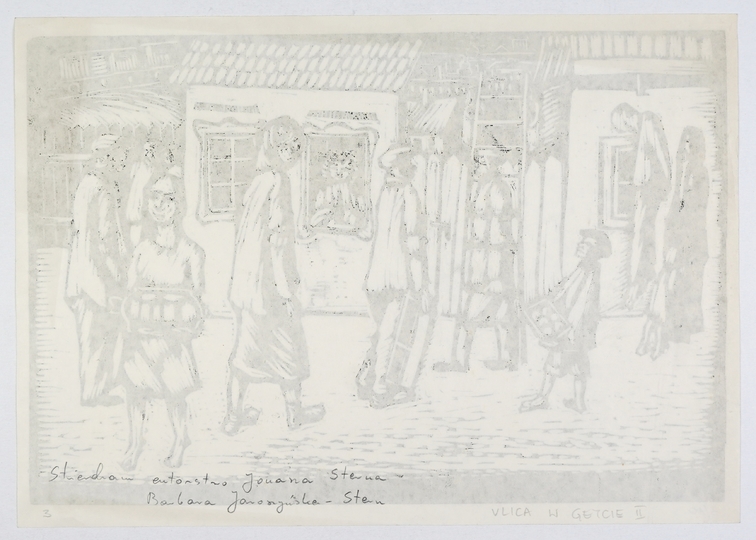 - Stwierdzam autorstwo Jonasza Sterna -
Barbara Jaroszyńska - Stern
ULICA W GETCIE II